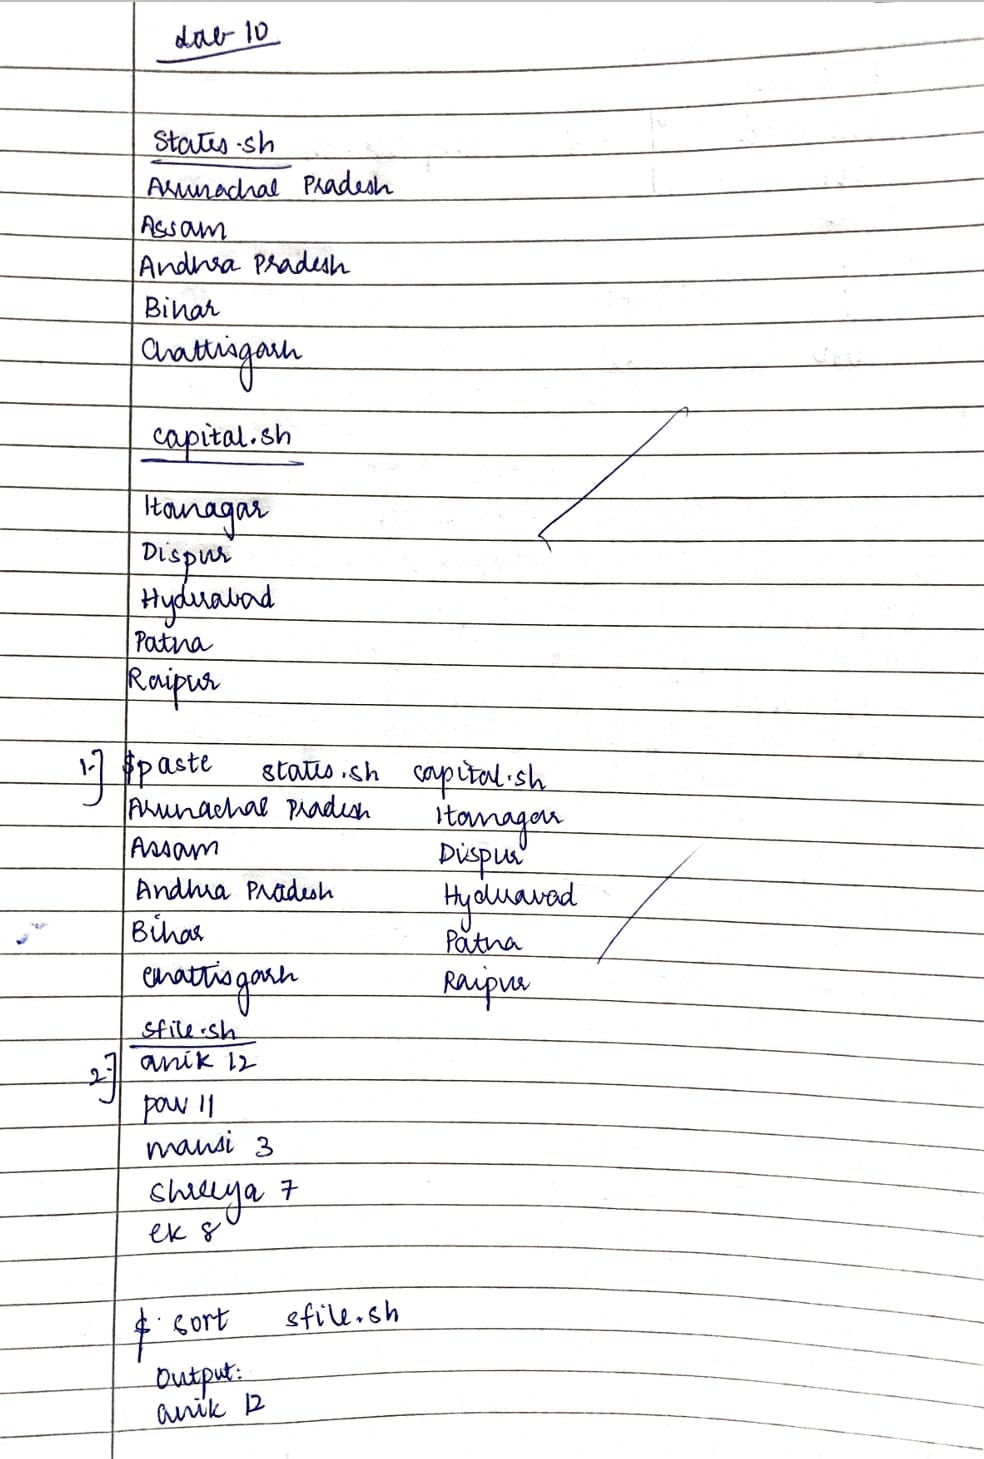 Lab 10
States.sh
Arunachal Pradesh
Assam
Andhra Pradesh
Bihar
Chattisgarh
capital.sh
Itanagar
Dispur
Hyderabad
Patna
Raipur
1.] $paste states.sh capital.sh
Arunachal Pradesh Itanagar
Assam Dispur
Andhra Pradesh Hyderabad
Bihar Patna
Chattisgarh Raipur
sfile.sh
2.] anik 12
11
mansi 3
shreeya 7
ek 8
$ sort sfile.sh
Output:
anik 12